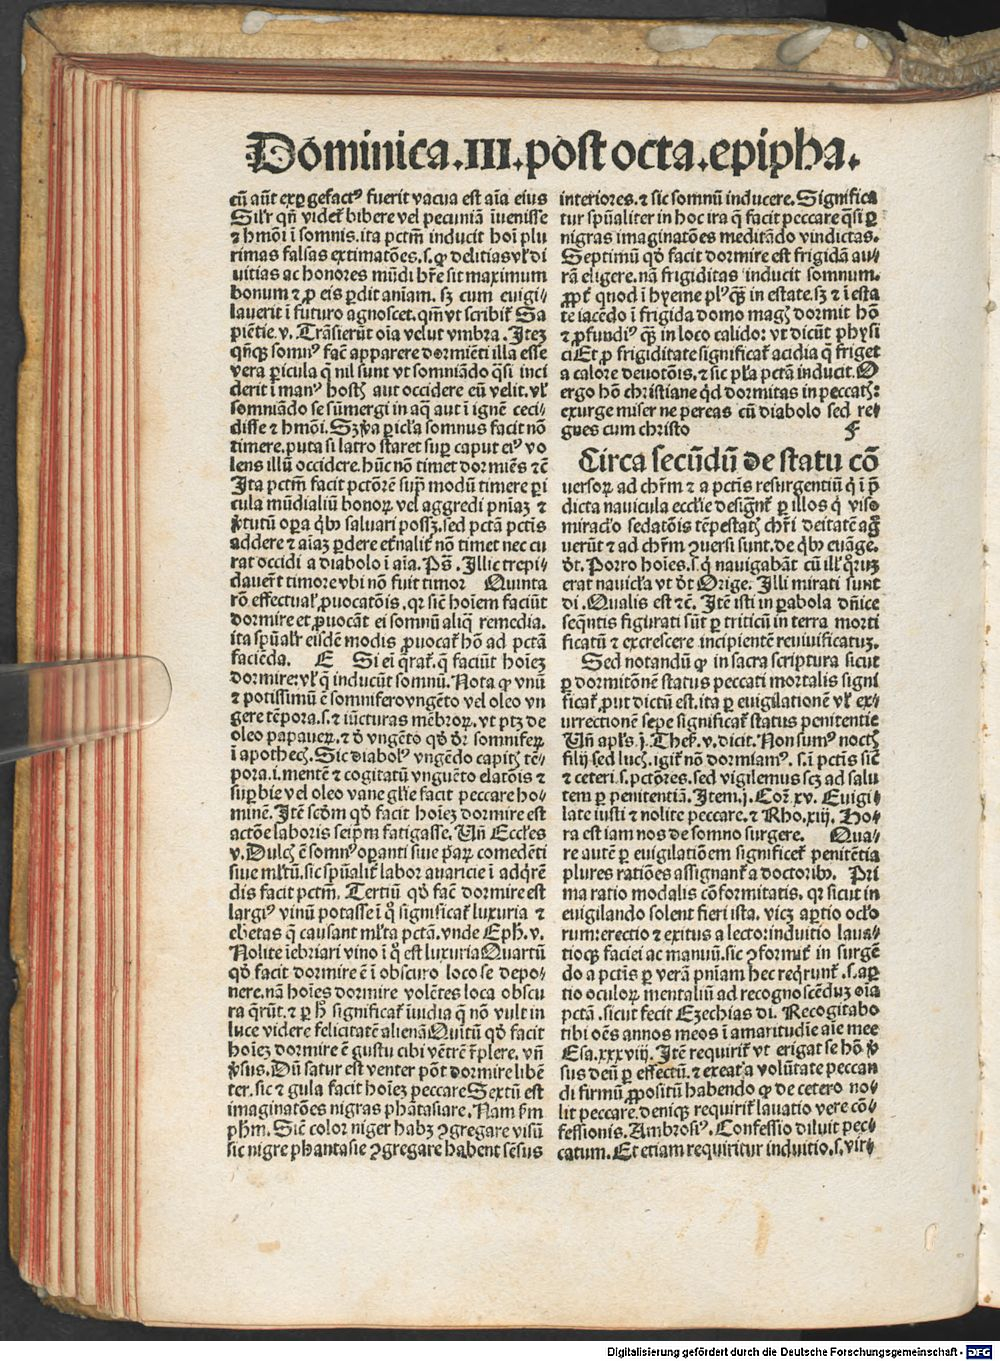 Dominica.III.post octa.epipha.
cū aūt exꝑgefactꝰ fuerit vacua est aīa eius
Silr qñ videt bibere vel pecuniā īuenisse
⁊ hmōi ī somnis.ita pctm̄ inducit hoī plu
rimas falsas extimatōes.s.ꝙ delitias vl̓ di
uitias ac honores mūdi hr̄e sit maximum
bonum ⁊ ꝓ eis ꝑdit aniam. sꝫ cum euigi⸗
lauerit ī futuro agnoscet.qm̄ vt scribit̉ Sa
piētie.v. Trāsierūt oīa velut vmbra. Iteꝫ
qñqꝫ somnꝰ facit apparere dormiēti illa esse
vera ꝑicula q̄ nil sunt vt somniādo q̄si inci
derit ī manꝰ hostiū aut occidere eū velit.vl̓
somniādo se sūmergi in aq̄ aut ī ignē ceci⸗
disse ⁊ hmōi. Sꝫ ꝟa ꝑicl̓a somnus facit nō
timere.puta si latro staret suꝑ caput eiꝰ vo
lens illū occidere.hūc nō timet dormiēs ⁊c̄
Ita pctm̄ facit pctōrē supͣ modū timere ꝑi
cula mūdialiū bonoꝝ vel aggredi pniaꝫ ⁊
ꝟtutū oꝑa qͥbꝰ saluari possꝫ.sed pctā pctis
addere ⁊ aīaꝫ ꝑdere et̉nalit̉ nō timet nec cu
rat occidi a diabolo ī aīa. Pͣs. Illic trepi⸗
dauer̄t timore vbi nō fuit timor Quinta
rō effectual̓ ꝓuocatōis.qꝛ sic̄ hoīem faciūt
dormire et ꝓuocāt ei somnū aliq̄ remedia.
ita spūal̓r eisdē modis ꝓuocat̉ hō ad pctā
faciēda. E Si ei q̄rat̉.q̄ faciūt hoīeꝫ
dormire:vl̓ q̄ inducūt somnū. Nota ꝙ vnū
⁊ potissimū ē somnifero vngēto vel oleo vn
gere tēpora.s.⁊ iūcturas mēbroꝝ.vt ptꝫ de
oleo papaueꝝ.⁊ ð vngēto qð dr̄ somniferꝝ
ī apothecꝭ. Sic diabolꝰ vngēdo capitꝭ tē⸗
pora.i.mentē ⁊ cogitatū vnguēto elatōis ⁊
suꝑbie vel oleo vane glīe facit peccare ho⸗
minē. Itē scd̄m qð facit hoīeꝫ dormire est
actōe laboris seip̄m fatigasse. Vñ Eccl̓es
v. Dulcꝭ ē somnꝰ oꝑanti siue ꝑaꝝ comedēti
siue ml̓tū.sic spūalit̉ labor auaricie ī adqͥrē
dis facit pctm̄. Tertiū qð facit dormire est
largiꝰ vinū potasse ī q̄ significat̉ luxuria ⁊
ebetas q̄ causant ml̓ta pctā.vnde Eph.v.
Nolite īebriari vino ī q̄ est luxuria Quartū
qð facit dormire ē ī obscuro loco se depo⸗
nere.nā hoīes dormire volētes loca obscu
ra q̄rūt.⁊ ꝑ h̄ significat̉ īuidia q̄ nō vult in
luce videre felicitatē alienā Quītū qð facit
hoīeꝫ dormire ē gustu cibi vētrē r̄plere.vñ
ꝟsus. Dū satur est venter pōt dormire libē
ter.sic ⁊ gula facit hoīeꝫ peccare Sextū est
imaginatōes nigras phātasiare. Nam sm̄
phm̄. Sic̄ color niger habꝫ ꝯgregare visū
sic nigre phantasie ꝯgregare habent sēsus
interiores.⁊ sic somnū inducere. Significa
tur spūaliter in hoc ira q̄ facit peccare q̄si ꝑ
nigras imaginatōes meditādo vindictas.
Septimū qð facit dormire est frigidā au⸗
rā eligere.nā frigiditas inducit somnum.
ꝓpt̉ quod ī hyeme plꝰ qͣꝫ in estate.sꝫ ⁊ ī esta
te iacēdo ī frigida domo magꝭ dormit hō
⁊ ꝓfundiꝰ qͣꝫ in loco calido: vt dicūt physi
ci Et ꝓ frigiditate significat̉ acidia q̄ friget
a calore deuotōis.⁊ sic pl̓a pctā inducit. O
ergo hō christiane qͥd dormitas in peccatꝭ:
exurge miser ne pereas cū diabolo sed re⸗
gnes cum christo F
Circa secūdū de statu cō
uersoꝝ ad chrm̄ ⁊ a pctis resurgentiū qͥ ī p̄
dicta nauicula eccl̓ie designāt̉ ꝑ illos qͥ viso
miracl̓o sedatōis tēpestatꝭ chr̄i deitatē ag
uerūt ⁊ ad chrm̄ ꝯuersi sunt.de qͥbꝰ euāge.
dt̄. Porro hoīes.s.qͥ nauigabāt cū illo qͦꝝ
erat nauicl̓a vt dt̄ Orige. Illi mirati sunt
di. Qualis est ⁊c̄. Itē isti in ꝑabola dn̄ice
seqn̄tis figurati sūt ꝑ triticū in terra morti
ficatū ⁊ excrescere incipientē reuiuificatuꝫ.
Sed notandū ꝙ in sacra scriptura sicut
ꝑ dormitōnē status peccati mortalis signi
ficat̉.put dictū est.ita ꝑ euigilationē vl̓ ex⸗
urrectionē sepe significat̉ status penitentie
Vñ apl̓s.j. Thes̉.v.dicit. Non sumꝰ noctꝭ
filij sed lucꝭ.igit̉ nō dormiamꝰ.s.ī pctis sic̄
⁊ ceteri.s.pctōres.sed vigilemus scꝫ ad salu
tem ꝑ penitentiā. Item.j. Cor̉.xv. Euigi⸗
late iusti ⁊ nolite peccare.⁊ Rho.xiij. Ho⸗
ra est iam nos de somno surgere. Qua⸗
re autē ꝑ euigilatiōem significet̉ penitētia
plures ratiōes assignant̉ a doctoribꝰ. Pri
ma ratio modalis cōformitatis.qꝛ sicut in
euigilando solent fieri ista.vicꝫ aꝑtio oclo̓
rum:erectio ⁊ exitus a lecto:induitio laua⸗
tioqꝫ faciei ac manuū.sic ꝯformit̉ in surgē
do a pctis ꝑ verā pniam hec reqͥrunt̉.s.aꝑ
tio oculoꝝ mentaliū ad recognoscēduꝫ oīa
pctā.sicut fecit Ezechias di. Recogitabo
tibi oēs annos meos ī amaritudīe aīe mee
Esa.xxxviij. Itē requirit̉ vt erigat se hō ꝟ
sus deū ꝑ effectū.⁊ exeat a volūtate peccan
di firmū ꝓpositū habendo ꝙ de cetero no⸗
lit peccare.deniqꝫ requirit̉ lauatio vere cō⸗
fessionis. Ambrosiꝰ. Confessio diluit pec⸗
catum. Et etiam requiritur induitio.s.vir⸗
Digitalisierung gefördert durch die Deutsche Forschungsgemeinschaft - DFG